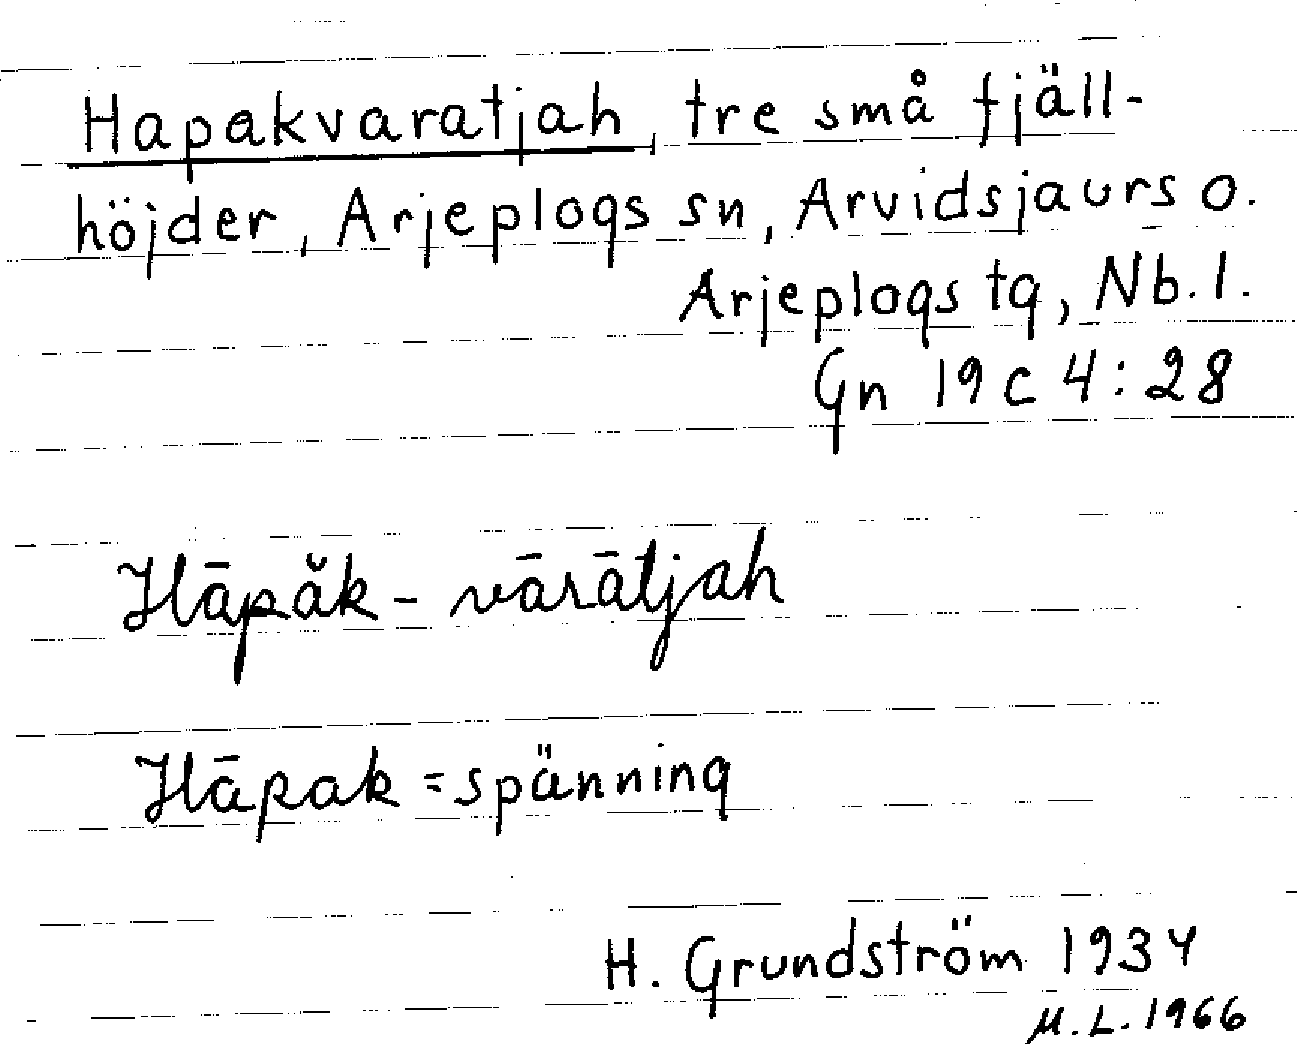 Hapakvaratjah, tre små fjäll-
höjder, Arjeplogs sn, Arvidsjaurs o.
Arjeplogs tg, Nb. l.
Gn 19 c 4:28
Hāpăk - vārātjah
Hāpak = spänning
H. Grundström 1934
M. L. 1966